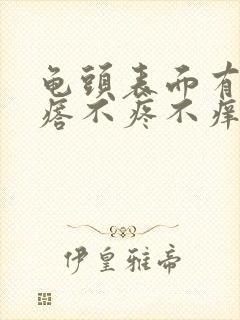 龟頭表面有
痞不疼不痒
伊皇雅帝